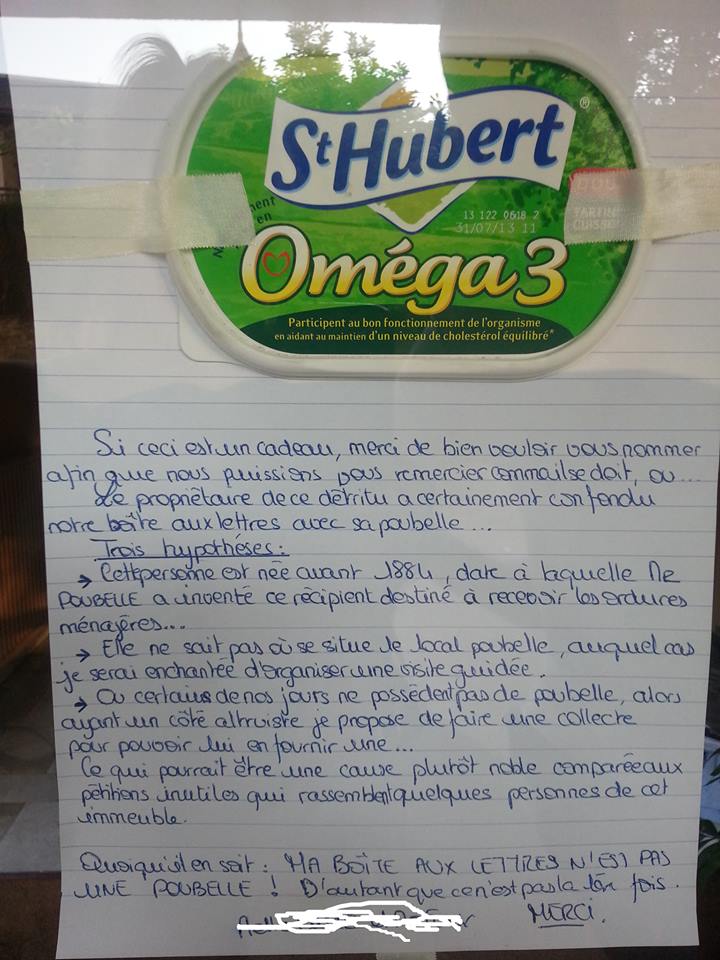 St Hubert ®
13 122 0618 2
31/07/13 11
en
Oméga 3
Participent au bon fonctionnement de l'organisme
en aidant au maintien d'un niveau de cholestérol équilibré*
Si ceci est un cadeau, merci de bien vouloir vous nommer
afin que nous puissions vous remercier comme il se doit, ou...
Le propriétaire de ce détritu a certainement confondu
notre boîte aux lettres avec sa poubelle...
Trois hypothèses:
→ Cette personne est née avant 1884, date à laquelle Mr
POUBELLE a inventé ce récipient destiné à recevoir les ordures
ménagères...
→ Elle ne sait pas où se situe le local poubelle, auquel cas
je serai enchantée d'organiser une visite guidée.
→ Ou certains de nos jours ne possèdent pas de poubelle, alors
ayant un côté altruiste je propose de faire une collecte
pour pouvoir lui en fournir une...
Ce qui pourrait être une cause plutôt noble comparée aux
pétitions inutiles qui rassemblent quelques personnes de cet
immeuble.
Quoiqu'il en soit : MA BOÎTE AUX LETTRES N'EST PAS
UNE POUBELLE ! D'autant que ce n'est pas la 1ère fois.
MERCI.